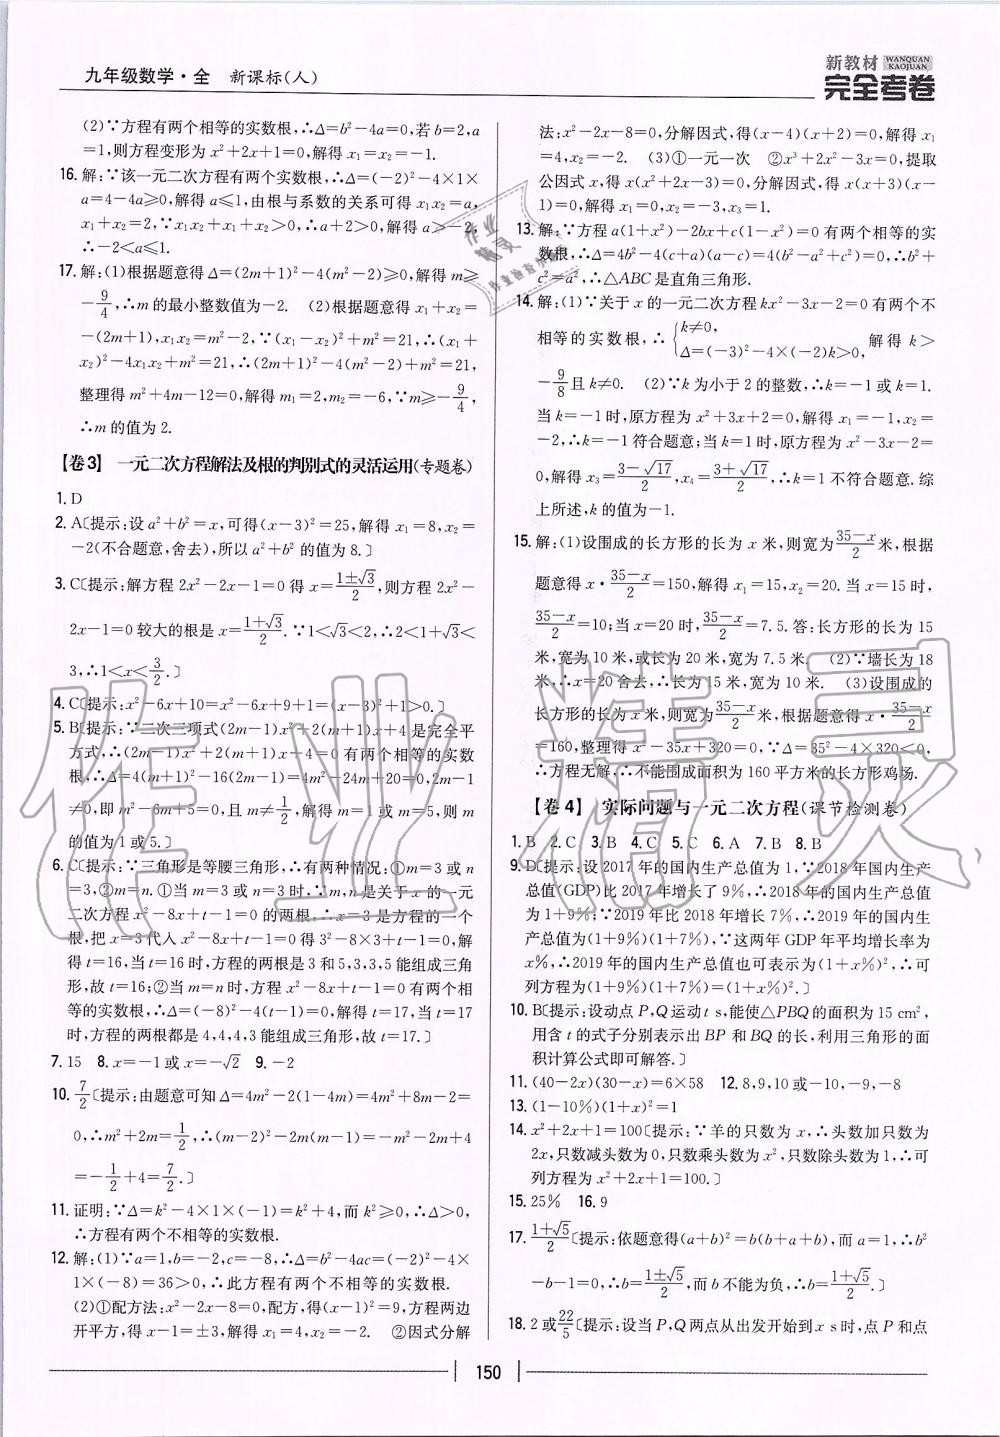 九年级数学·全 新课标(人)
新教材 WANQUAN KAOJUAN
完全考卷
(2)∵方程有两个相等的实数根,∴Δ=b²-4a=0,若b=2,a
=1,则方程变形为x²+2x+1=0,解得x₁=x₂=-1.
16.解:∵该一元二次方程有两个实数根,∴Δ=(-2)²-4×1×
a=4-4a≥0,解得a≤1,由根与系数的关系可得x₁x₂=a,
x₁+x₂=2,∵x₁x₂+x₁+x₂>0,∴a+2>0,解得a>-2,
∴-2<a≤1.
17.解:(1)根据题意得Δ=(2m+1)²-4(m²-2)≥0,解得m≥
-9/4,∴m的最小整数值为-2. (2)根据题意得x₁+x₂=
-(2m+1),x₁x₂=m²-2,∵(x₁-x₂)²+m²=21,∴(x₁+
x₂)²-4x₁x₂+m²=21,∴(2m+1)²-4(m²-2)+m²=21,
整理得m²+4m-12=0,解得m₁=2,m₂=-6,∵m≥-9/4,
∴m的值为2.
【卷3】 一元二次方程解法及根的判别式的灵活运用(专题卷)
1.D
2.A〔提示:设a²+b²=x,可得(x-3)²=25,解得x₁=8,x₂=
-2(不合题意,舍去),所以a²+b²的值为8.〕
3.C〔提示:解方程2x²-2x-1=0得x=(1±√3)/2,则方程2x²-
2x-1=0较大的根是x=(1+√3)/2.∵1<√3<2,∴2<1+√3<
3,∴1<x<3/2.〕
4.C〔提示:x²-6x+10=x²-6x+9+1=(x-3)²+1>0.〕
5.B〔提示:∵二次三项式(2m-1)x²+2(m+1)x+4是完全平
方式,∴(2m-1)x²+2(m+1)x+4=0有两个相等的实数
根,∴Δ=4(m+1)²-16(2m-1)=4m²-24m+20=0,2m-1
≠0,即m²-6m+5=0,且m≠1/2,解得m=1或m=5,则m
的值为1或5.〕
6.C〔提示:∵三角形是等腰三角形,∴有两种情况:①m=3或n
=3,②m=n.①当m=3或n=3时,∵m,n是关于x的一元
二次方程x²-8x+t-1=0的两根,∴x=3是方程的一个
根,把x=3代入x²-8x+t-1=0得3²-8×3+t-1=0,解
得t=16,当t=16时,方程的两根是3和5,3,3,5能组成三角
形,故t=16;②当m=n时,方程x²-8x+t-1=0有两个相
等的实数根,∴Δ=(-8)²-4(t-1)=0,解得t=17,当t=17
时,方程的两根都是4,4,4,3能组成三角形,故t=17.〕
7.15 8.x=-1或x=-√2 9.-2
10.7/2〔提示:由题意可知Δ=4m²-2(1-4m)=4m²+8m-2=
0,∴m²+2m=1/2,∴(m-2)²-2m(m-1)=-m²-2m+4
=-1/2+4=7/2.〕
11.证明:∵Δ=k²-4×1×(-1)=k²+4,而k²≥0,∴Δ>0,
∴方程有两个不相等的实数根.
12.解:(1)∵a=1,b=-2,c=-8,∴Δ=b²-4ac=(-2)²-4×
1×(-8)=36>0,∴此方程有两个不相等的实数根.
(2)①配方法:x²-2x-8=0,配方,得(x-1)²=9,方程两边
开平方,得x-1=±3,解得x₁=4,x₂=-2. ②因式分解
法:x²-2x-8=0,分解因式,得(x-4)(x+2)=0,解得x₁
=4,x₂=-2. (3)①一元一次 ②x³+2x²-3x=0,提取
公因式x,得x(x²+2x-3)=0,分解因式,得x(x+3)(x-
1)=0,解得x₁=0,x₂=-3,x₃=1.
13.解:∵方程a(1+x²)-2bx+c(1-x²)=0有两个相等的实
数根,∴Δ=4b²-4(c+a)(a-c)=4(b²-a²+c²)=0,∴b²+
c²=a²,∴△ABC是直角三角形.
14.解:(1)∵关于x的一元二次方程kx²-3x-2=0有两个不
相等的实数根,∴{k≠0, Δ=(-3)²-4×(-2)k>0, 解得k>
-9/8且k≠0. (2)∵k为小于2的整数,∴k=-1或k=1.
当k=-1时,原方程为x²+3x+2=0,解得x₁=-1,x₂=
-2,∴k=-1符合题意;当k=1时,原方程为x²-3x-2=
0,解得x₃=(3-√17)/2,x₄=(3+√17)/2,∴k=1不符合题意.综
上所述,k的值为-1.
15.解:(1)设围成的长方形的长为x米,则宽为(35-x)/2米,根据
题意得x·(35-x)/2=150,解得x₁=15,x₂=20.当x=15时,
(35-x)/2=10;当x=20时,(35-x)/2=7.5.答:长方形的长为15
米,宽为10米,或长为20米,宽为7.5米. (2)∵墙长为18
米,∴x=20舍去,∴长为15米,宽为10米. (3)设围成的
长方形的长为x米,则宽为(35-x)/2米,根据题意得x·(35-x)/2
=160,整理得x²-35x+320=0,∵Δ=35²-4×320<0,
∴方程无解,∴不能围成面积为160平方米的长方形鸡场.
【卷4】 实际问题与一元二次方程(课节检测卷)
1.B 2.C 3.B 4.C 5.C 6.A 7.B 8.B
9.D〔提示:设2017年的国内生产总值为1,∵2018年国内生产
总值(GDP)比2017年增长了9%,∴2018年的国内生产总值
为1+9%;∵2019年比2018年增长7%,∴2019年的国内生
产总值为(1+9%)(1+7%),∵这两年GDP年平均增长率为
x%,∴2019年的国内生产总值也可表示为(1+x%)²,∴可
列方程为(1+9%)(1+7%)=(1+x%)².〕
10.B〔提示:设动点P,Q运动t s,能使△PBQ的面积为15 cm²,
用含t的式子分别表示出BP和BQ的长,利用三角形的面
积计算公式即可解答.〕
11.(40-2x)(30-x)=6×58 12.8,9,10或-10,-9,-8
13.(1-10%)(1+x)²=1
14.x²+2x+1=100〔提示:∵羊的只数为x,∴头数加只数为
2x,只数减头数为0,只数乘头数为x²,只数除头数为1,∴可
列方程为x²+2x+1=100.〕
15.25% 16.9
17.(1+√5)/2〔提示:依题意得(a+b)²=b(b+a+b),而a=1,∴b²
-b-1=0,∴b=(1±√5)/2,而b不能为负,∴b=(1+√5)/2.〕
18.2或22/5〔提示:设当P,Q两点从出发开始到x s时,点P和点
150
作业精灵